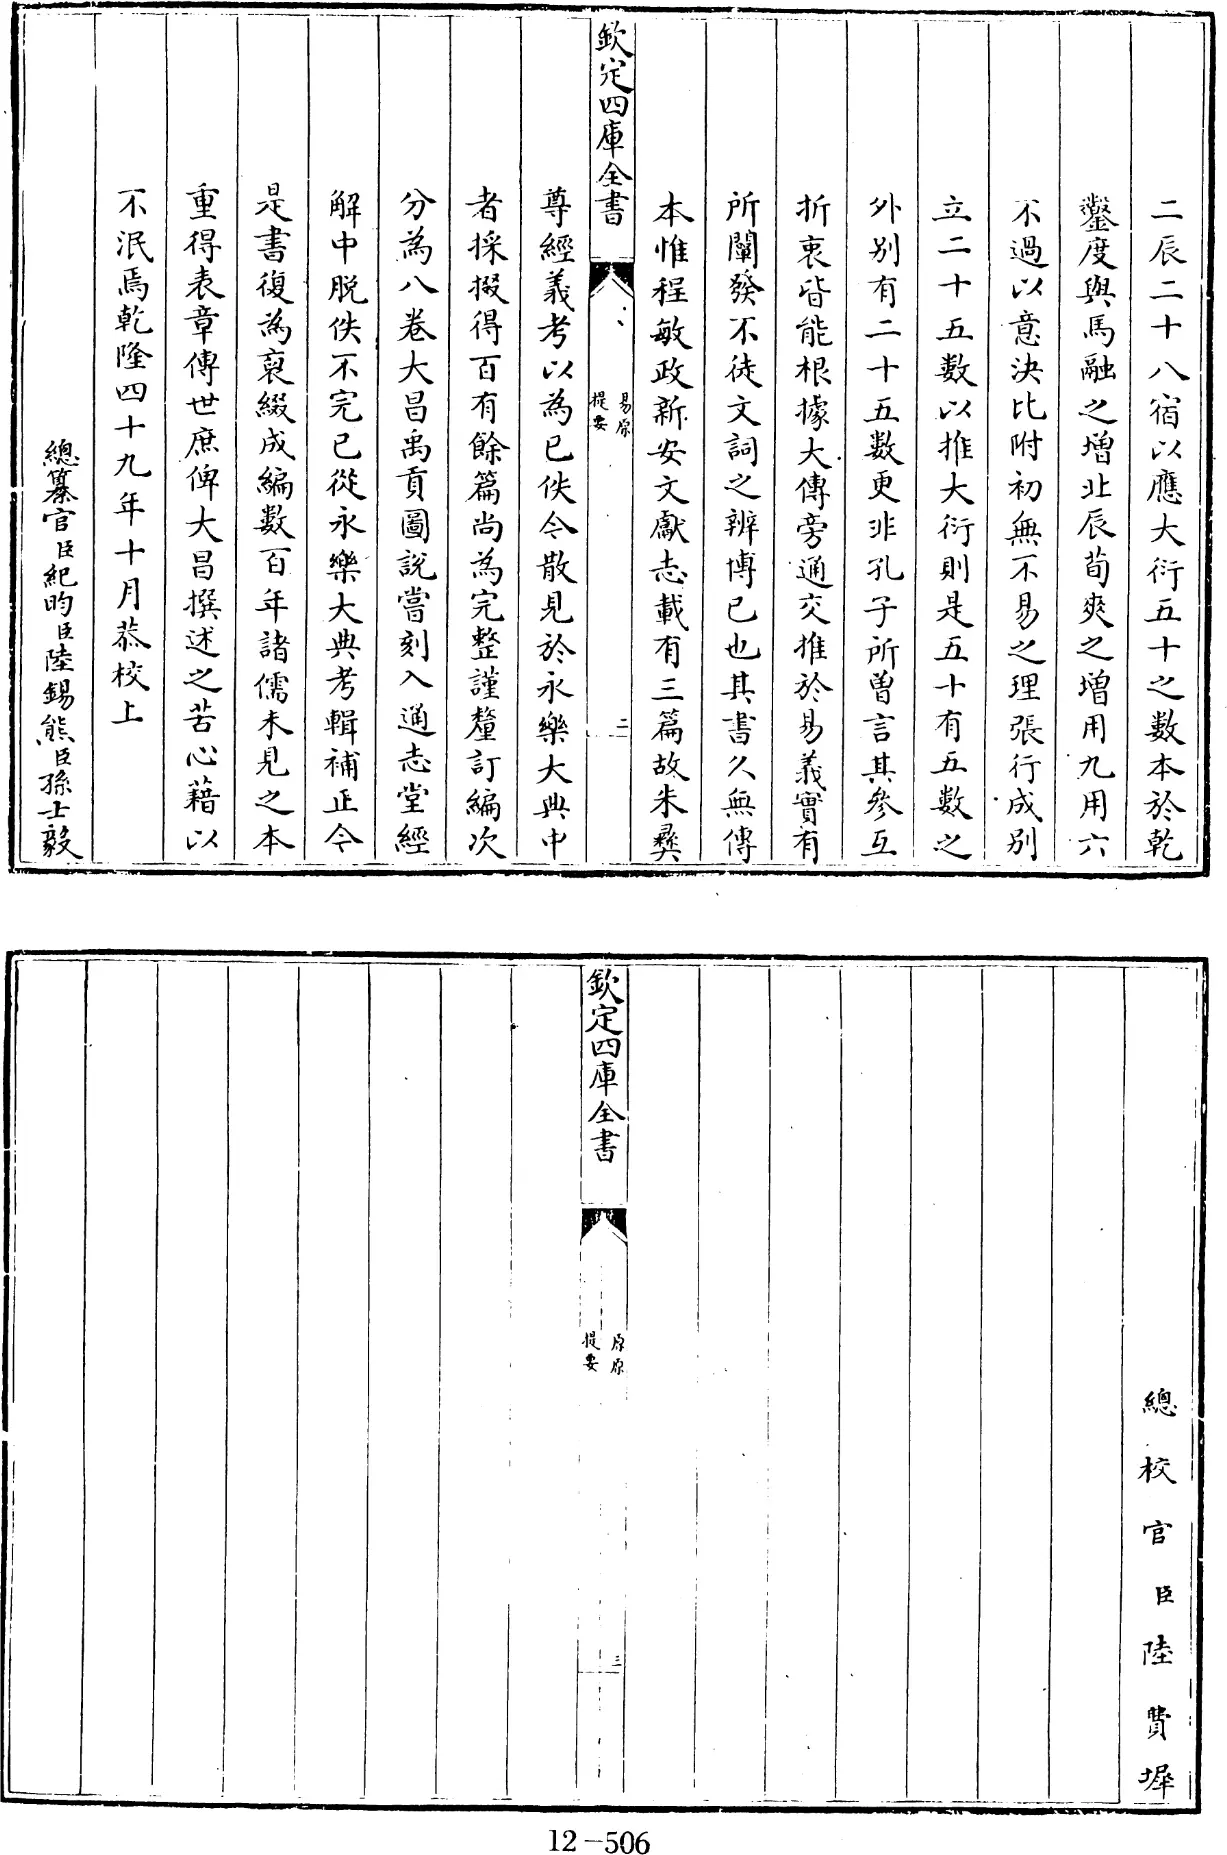 二辰二十八宿以應大衍五十之數本於乾
鑿度與馬融之增北辰荀爽之增用九用六
不過以意決比附初無不易之理張行成別
立二十五數以推大衍則是五十有五數之
外別有二十五數更非孔子所曽言其參互
折衷皆能根據大傳旁通交推於易義實有
所闡發不徒文詞之辨博已也其書久無傳
本惟程敏政新安文獻志載有三篇故朱彝
欽定四庫全書
易原
提要
二
尊經義考以為已佚今散見於永樂大典中
者採掇得百有餘篇尚為完整謹釐訂編次
分為八卷大昌禹貢圖説嘗刻入通志堂經
解中脱佚不完已從永樂大典考輯補正今
是書復為裒綴成編數百年諸儒未見之本
重得表章傳世庶俾大昌撰述之苦心藉以
不泯焉乾隆四十九年十月恭校上
總纂官臣紀昀臣陸錫熊臣孫士毅
總校官臣陸費墀
欽定四庫全書
原原
提要
三
12-506